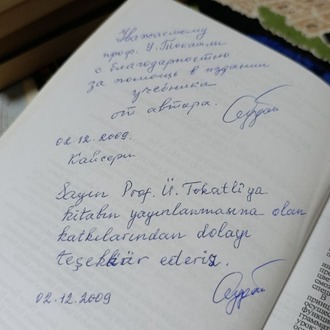 Уважаемому
проф. У. Токатлы
с благодарностью
за помощь в издании
учебника
от автора.
02.12.2009.
Кайсери
Sayın Prof. Ü. Tokatlı'ya
kitabın yayınlanmasına olan
katkılarından dolayı
teşekkür ederiz.
02.12.2009